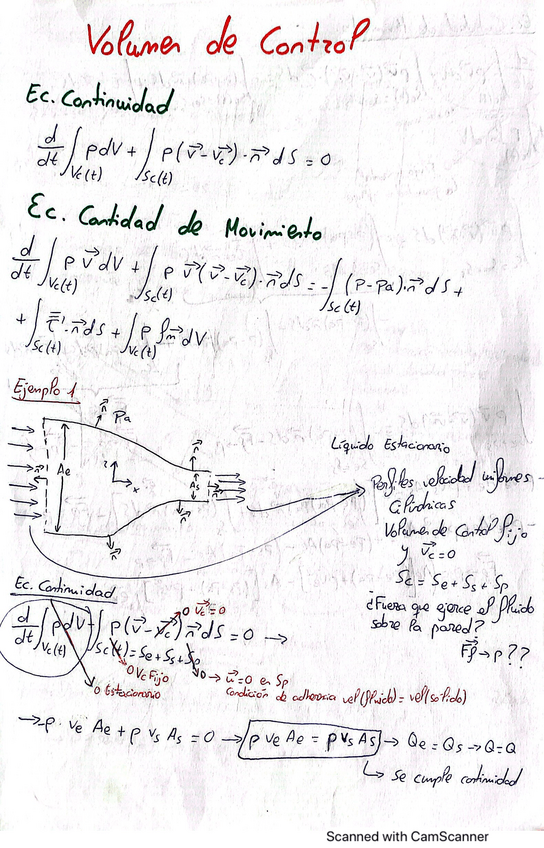 Volumen de Control
Ec. Continuidad
d/dt ∫_{Vc(t)} ρ dV + ∫_{Sc(t)} ρ (v⃗ - v⃗c) · n⃗ dS = 0
Ec. Cantidad de Movimiento
d/dt ∫_{Vc(t)} ρ v⃗ dV + ∫_{Sc(t)} ρ v⃗ (v⃗ - v⃗c) · n⃗ dS = - ∫_{Sc(t)} (P - Pa) · n⃗ dS +
+ ∫_{Sc(t)} τ' · n⃗ dS + ∫_{Vc(t)} ρ f⃗m dV
Ejemplo 1
n⃗ Pa
n⃗
Ae
n⃗
z
x
As
n⃗
n⃗
n⃗
Líquido Estacionario
Perfiles velocidad uniformes
Cilíndricas
Volumen de Control fijo
y v⃗c = 0
Sc = Se + Ss + Sp
¿Fuerza que ejerce el fluido
sobre la pared?
F⃗f→p ??
Ec. Continuidad
d/dt ∫_{Vc(t)} ρ dV + ∫_{Sc(t) = Se + Ss + Sp} ρ (v⃗ - v⃗c) n⃗ dS = 0 →
0 v⃗c = 0
0 Vc Fijo
0 Estacionario
0 → u⃗ = 0 en Sp
Condición de adherencia vel(fluido) = vel(sólido)
→ -ρ · ve Ae + ρ vs As = 0 → ρ ve Ae = ρ vs As → Qe = Qs → Q = Q
↳ se cumple continuidad
Scanned with CamScanner